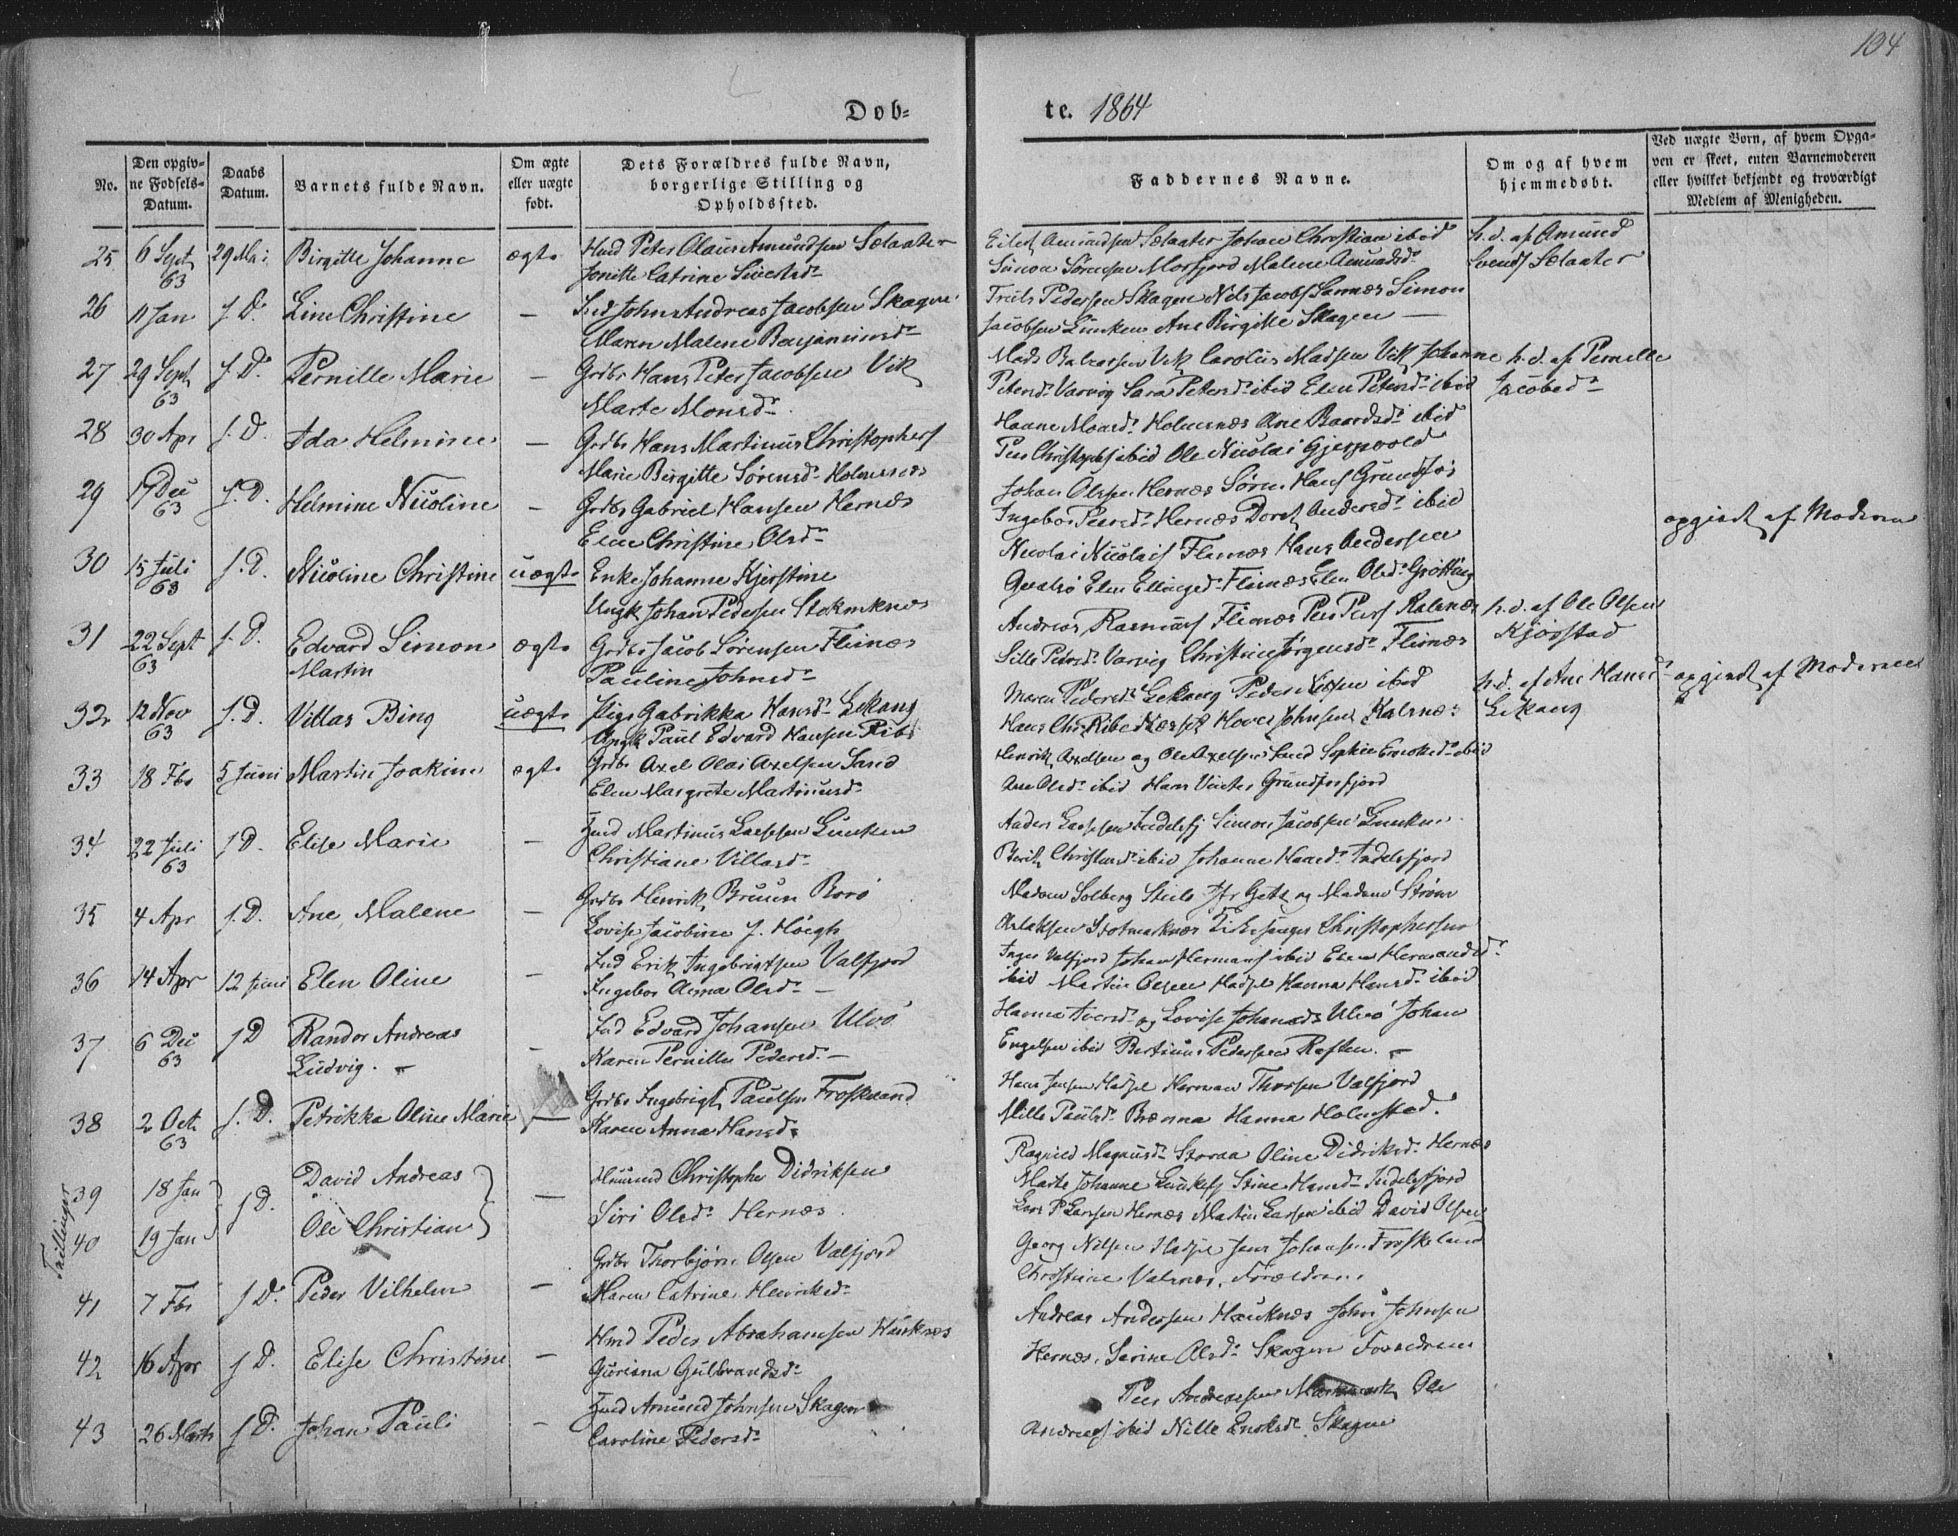 104
Døb-
te. 1864
No.
Den opgiv-
ne Fødsels-
Datum.
Daabs
Datum.
Barnets fulde Navn.
Om ægte
eller uægte
født.
Dets Forældres fulde Navn,
borgerlige Stilling og
Opholdssted.
Faddernes Navne.
Om og af hvem
hjemmedøbt.
Ved uægte Børn, af hvem Opga-
ven er skeet, enten Barnemoderen
eller hvilket bekjendt og troværdigt
Medlem af Menigheden.
25 6 Sept 63 29 Mai Birgitte Johanne ægte
Huusmd Peter Olaus Amundsen Sælaater
Catrine
Amundsen Sælaater Johan Christian ibid
Simon Sørensen Morfjord Malene Amundsd.
h. d. af Amund
Svends Sælaater
26 11 Jan s. D. Line Christine —
Ind John Andreas Jacobsen Skagen
Maren Malene Benjaminsd
Truls Pedersen Skagen Nils Jacobs Sannæs Simon
Jacobsen Lunken Ane Birgitte Skagen —
27 29 Sept 63 s. D. Pernille Marie —
Grdbr Hans Peter Jacobsen Vik
Marte Monsd.
Mads Baltersen Vik Carolus Madsen Vik Johanne
Petersd. Varvig Sara Petersd. ibid Elen Petersd. ibid
h. d. af Pernille
Jacobsd.
28 30 Apr s. D. Ida Helmine —
Grdbr Hans Martinus Christophers
Marie Birgitte Sørensd. Holmsnæs
Holmsnæs Ane Baardsd. ibid
Peer Christophers ibid Ole Nicolai Gjerpvold
29 17 Dec 63 s. D. Helmine Nicoline —
Grdbr Gabriel Hansen Hernæs
Elen Christine Olsd.
Johan Olsen Hernæs Søren Hans Grundfør
Ingebor Peersd. Hernæs Doret Andersd. ibid
30 15 Juli 63 s. D. Nicoline Christine uægte
Enke Johanne Kjerstine
Ungk Johan Pedersen Stokmknæs
Nicolai Nicolais Flesnæs Hans Andersen
Qvalsø Elen Ellingsd. Flesnæs Elen Olsd. Grøtting
opgivet af Moderen
31 22 Sept 63 s. D. Edvard Simon
Martin ægte
Grdbr Jacob Sørensen Flesnæs
Pauline Johnsd.
Andreas Rasmus Flesnæs Peer Peers Kalsnæs
Sille Pedersd. Varvig Christine Jørgensd. Flesnæs
h. d. af Ole Olsen
Kjørstad
32 12 Nov 63 s. D. Villas Bing uægte
Pige Gabrikka Hansd. Lekang
Ungk Paul Edvard Hansen Ribe
Maren Pedersd. Lekang Peder Olsen ibid
Hans Chr Ribe Næsset Johnsen Kalsnæs
h. d. af Ane Hansd.
Lekang
opgivet af Moderen
33 18 Fbr 5 Juni Martin Joakim ægte
Grdbr Axel Olai Axelsen Sand
Elen Margrete Martinusd.
Henrik Axelsen og Ole Axelsen Sand Sophie ibid
Ane Olsd. ibid Hans Grundforfjord
34 22 Juli 63 s. D. Elise Marie —
Huusmd Martinus Larssen Lunken
Christiane Villasd.
Anders Larssen Indelsfj Simon Jacobsen Lunken
Berit ibid Johanne Hansd. Indelsfjord
35 4 Apr s. D. Ane Malene —
Grdbr Henrik Bruun Borø
Lovise Jacobine J. Høegh
Madam Solberg Steilo og Madam Strøm
Aslaksen Stokmarknæs Kirkesanger Christophersen
36 14 Apr 12 Juni Elen Oline —
Ind Erik Ingebrigtsen Valfjord
Ingebor Anna Olsd. —
Inger Valfjord Johan Hermans ibid Elen Hermansd.
ibid Martin Hadsel Hanna Hansd. ibid
37 6 Dec 63 s D Randor Andreas
Ludvig. —
Ind Edvard Johansen Ulvø
Karen Pernille Pedersd. —
Hanna Iversd. og Lovise Johansd. Ulvø Johan
Engelsen ibid Bertinus Pedersen Raften. —
38 2 Oct 63 s. D. Petrikka Oline Marie —
Grdbr Ingebrigt Paulsen Froskeland
Karen Anna Hansd.
Hans Jensen Hadsel Herman Thorsen Valfjord
Nille Paulsd. Brænna Hanna Holmstad.
Tvillinger
39 18 Jan
40 19 Jan s D. David Andreas
Ole Christian —
Huusmd Christopher Didriksen
Siri Olsd. Hernæs.
Ragnild Magnusd. Storaa Oline Didriksd. Hernæs
Marte Johanne Stine Hansd. Indelsfjord
Lars P Larsen Hernæs Martin Larsen ibid David Olsen
41 7 Fbr s D. Peder Vilhelm —
Grdbr Thorbjørn Olsen Valfjord
Maren Catrine Henriksd.
Georg Nilsen Hadsel Jens Johansen Froskeland
Christine Valsnæs, Forældrene
42 16 Apr s D. Elise Christine —
Hmd Peder Abrahamsen Hauknæs
Guriana Gulbrandsd.
Andreas Andersen Hauknæs John Johnsen
Hernæs, Serine Olsd. Skagen Forældrene
43 26 Marts s D. Johan Pauli —
Huusmd Amund Johnsen Skagen
Caroline Pedersd.
Peer Andreassen Ole
Andreas ibid Nille Enoksd. Skagen